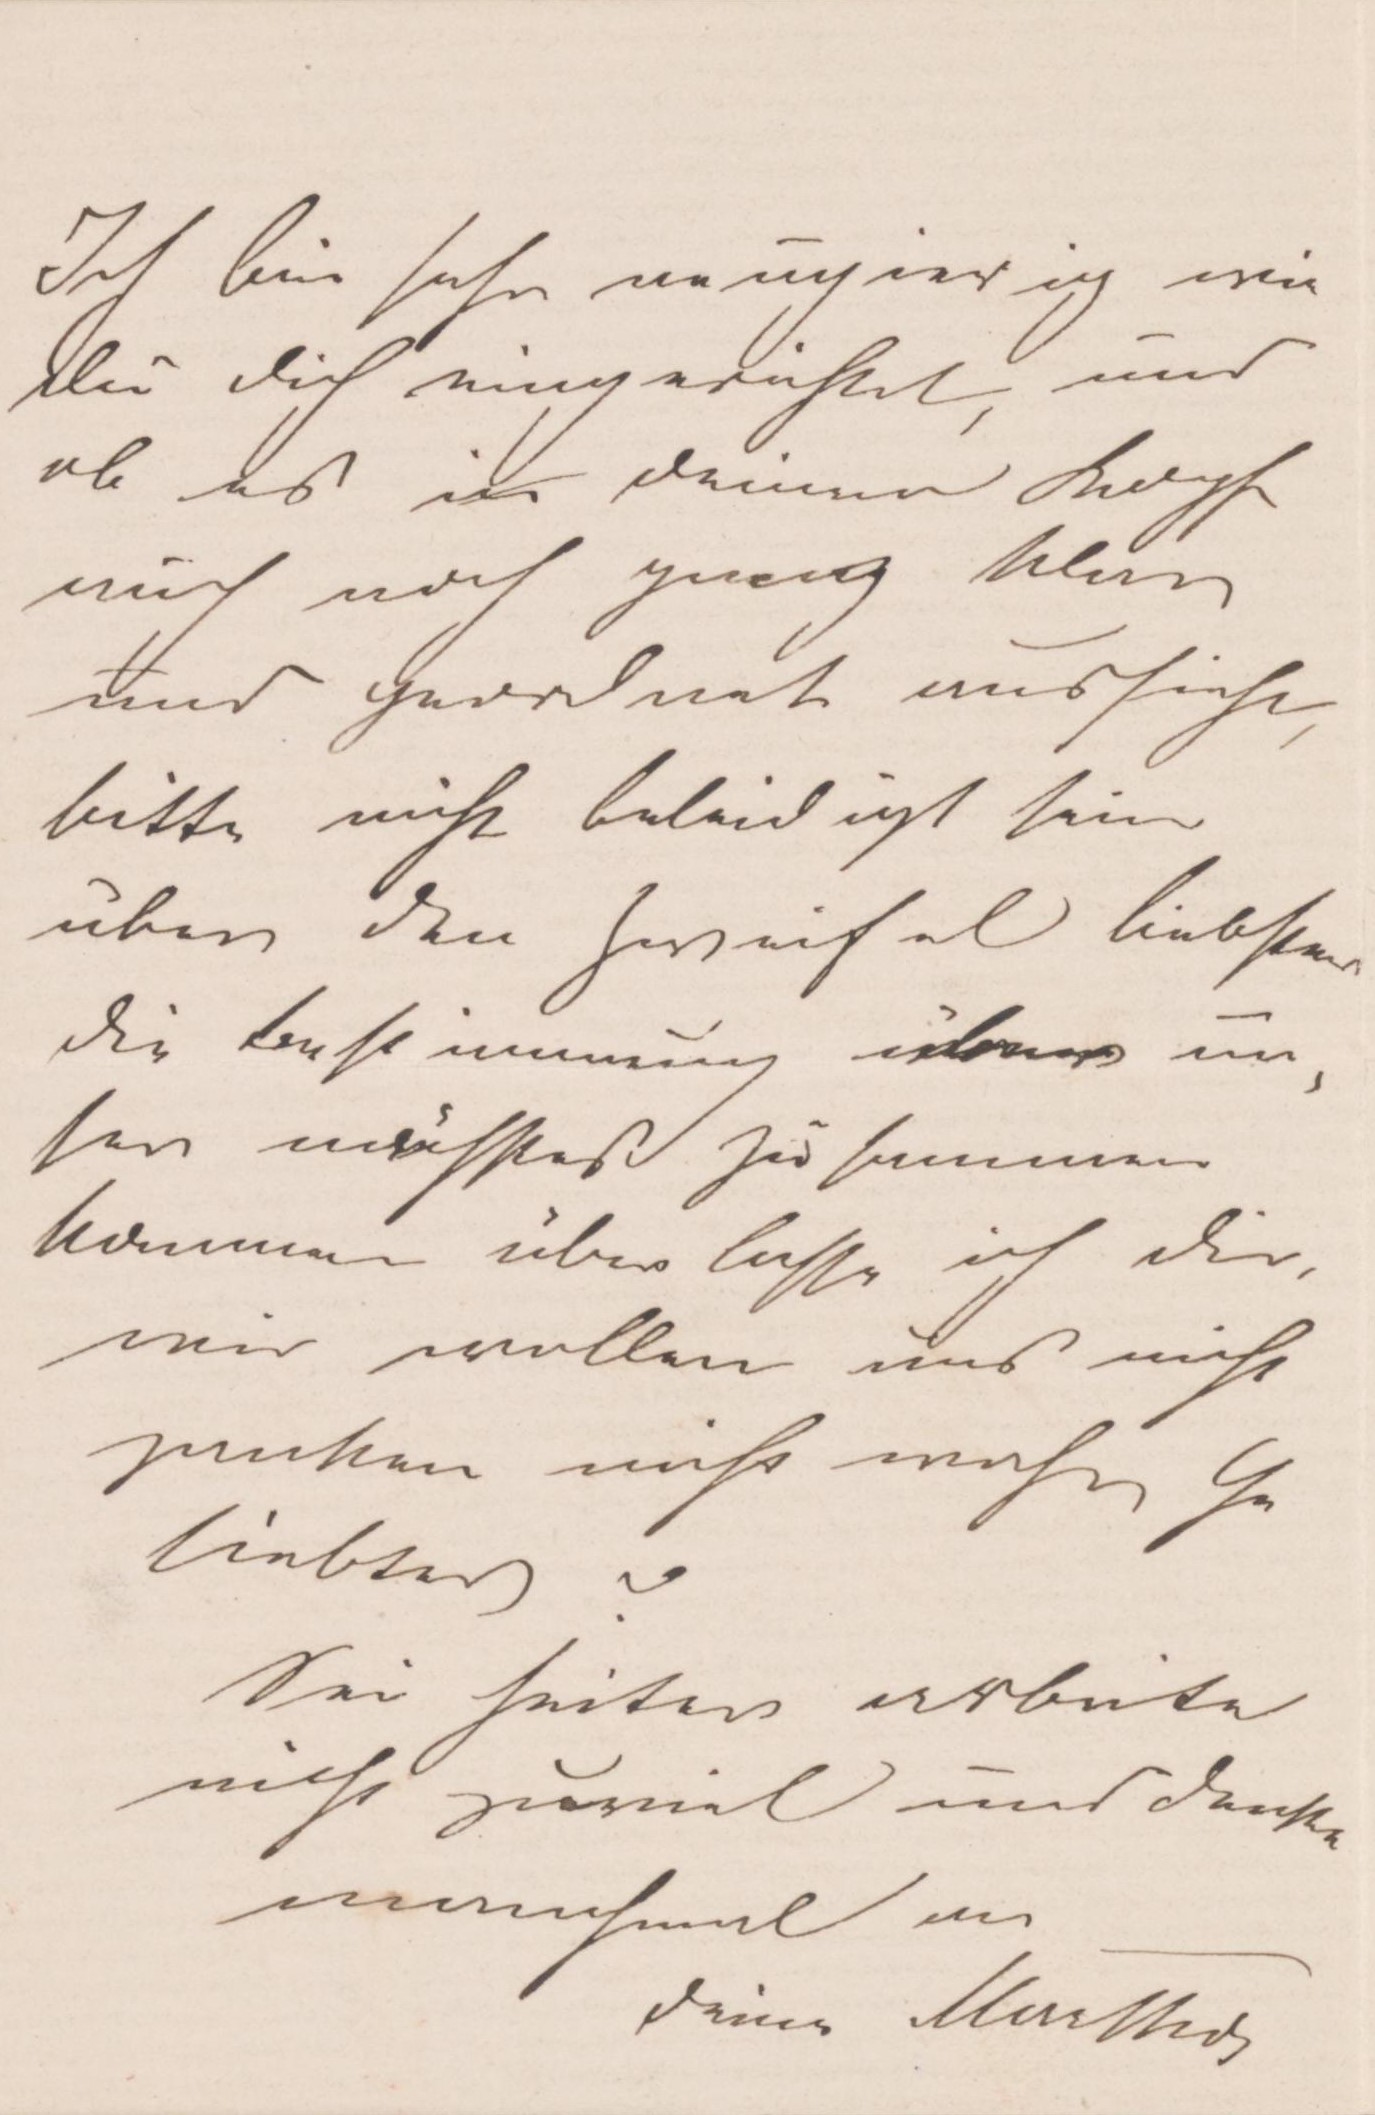 Ich bin sehr neugierig wie
du dich eingerichtet, und
ob es in deinem Kopf
auch noch ganz klar
und geordnet aussieht,
bitte nicht beleidigt sein
über den Zweifel liebster
die Bestimmung über un,
ser nächstes zusammen
kommen überlasse ich dir,
wir wollen uns nicht
zanken nicht wahr Ge
liebter?
Sei heiter arbeite
nicht zuviel und denke
manchmal an
deine Martha